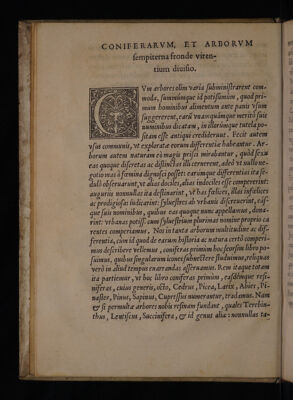 CONIFERARVM, ET ARBORVM
sempiterna fronde viren-
tium diuisio.
CVm arbores olim varia subministrarent com-
moda, summúmque id potissimùm, quod pri-
mùm hominibus alimentum ante panis vsum
suggererent, earũ vnamquámque meritò suis
numinibus dicatam, in illarúmque tutela po-
sitam esse antiqui crediderunt. Fecit autem
vsus communis, vt explorata eorum differentia habeantur. Ar-
borum autem naturam eò magis prisci mirabantur, quòd sexu
eas quoque discretas ac distinctas
notio mas à fœmina dignosci posset: earúmque differentias ita se-
duli obseruarunt, vt alias dociles, alias indociles esse compererint:
auguriis nonnullas ita destinarint, vt has felices, illas infelices
ac prodigiosas iudicarint: syluestres ab vrbanis discreuerint, eás-
que suis nominibus, quibus eas quoque nunc appellamus, dona-
rint: vrbanas potissimùm syluestrium plurimas nomine proprio ca-
rentes comperiamus. Nos in tanta arborum multitudine ac dif-
ferentia, cùm id quod de earum historia ac natura certò comperi-
mus describere vellemus, coniferas primùm hoc seorsim libro po-
suimus, quibus singularum icones subiectere studuimus, reliquas
verò in aliud tempus enarrandas asseruamus. Rem itaque totam
ita partimur, vt hoc libro coniferas primùm, eásdemque resi-
niferas, cuius generis, octo, Cedrus, Picea, Larix, Abies, Pi-
naster, Pinus, Sapinus, Cupressus numerantur, tradamus. Nam
& si permultæ arbores nobis resinam fundant, quales Terebin-
thus, Lentiscus, Succinifera, & id genus aliæ: nonnullas ta-